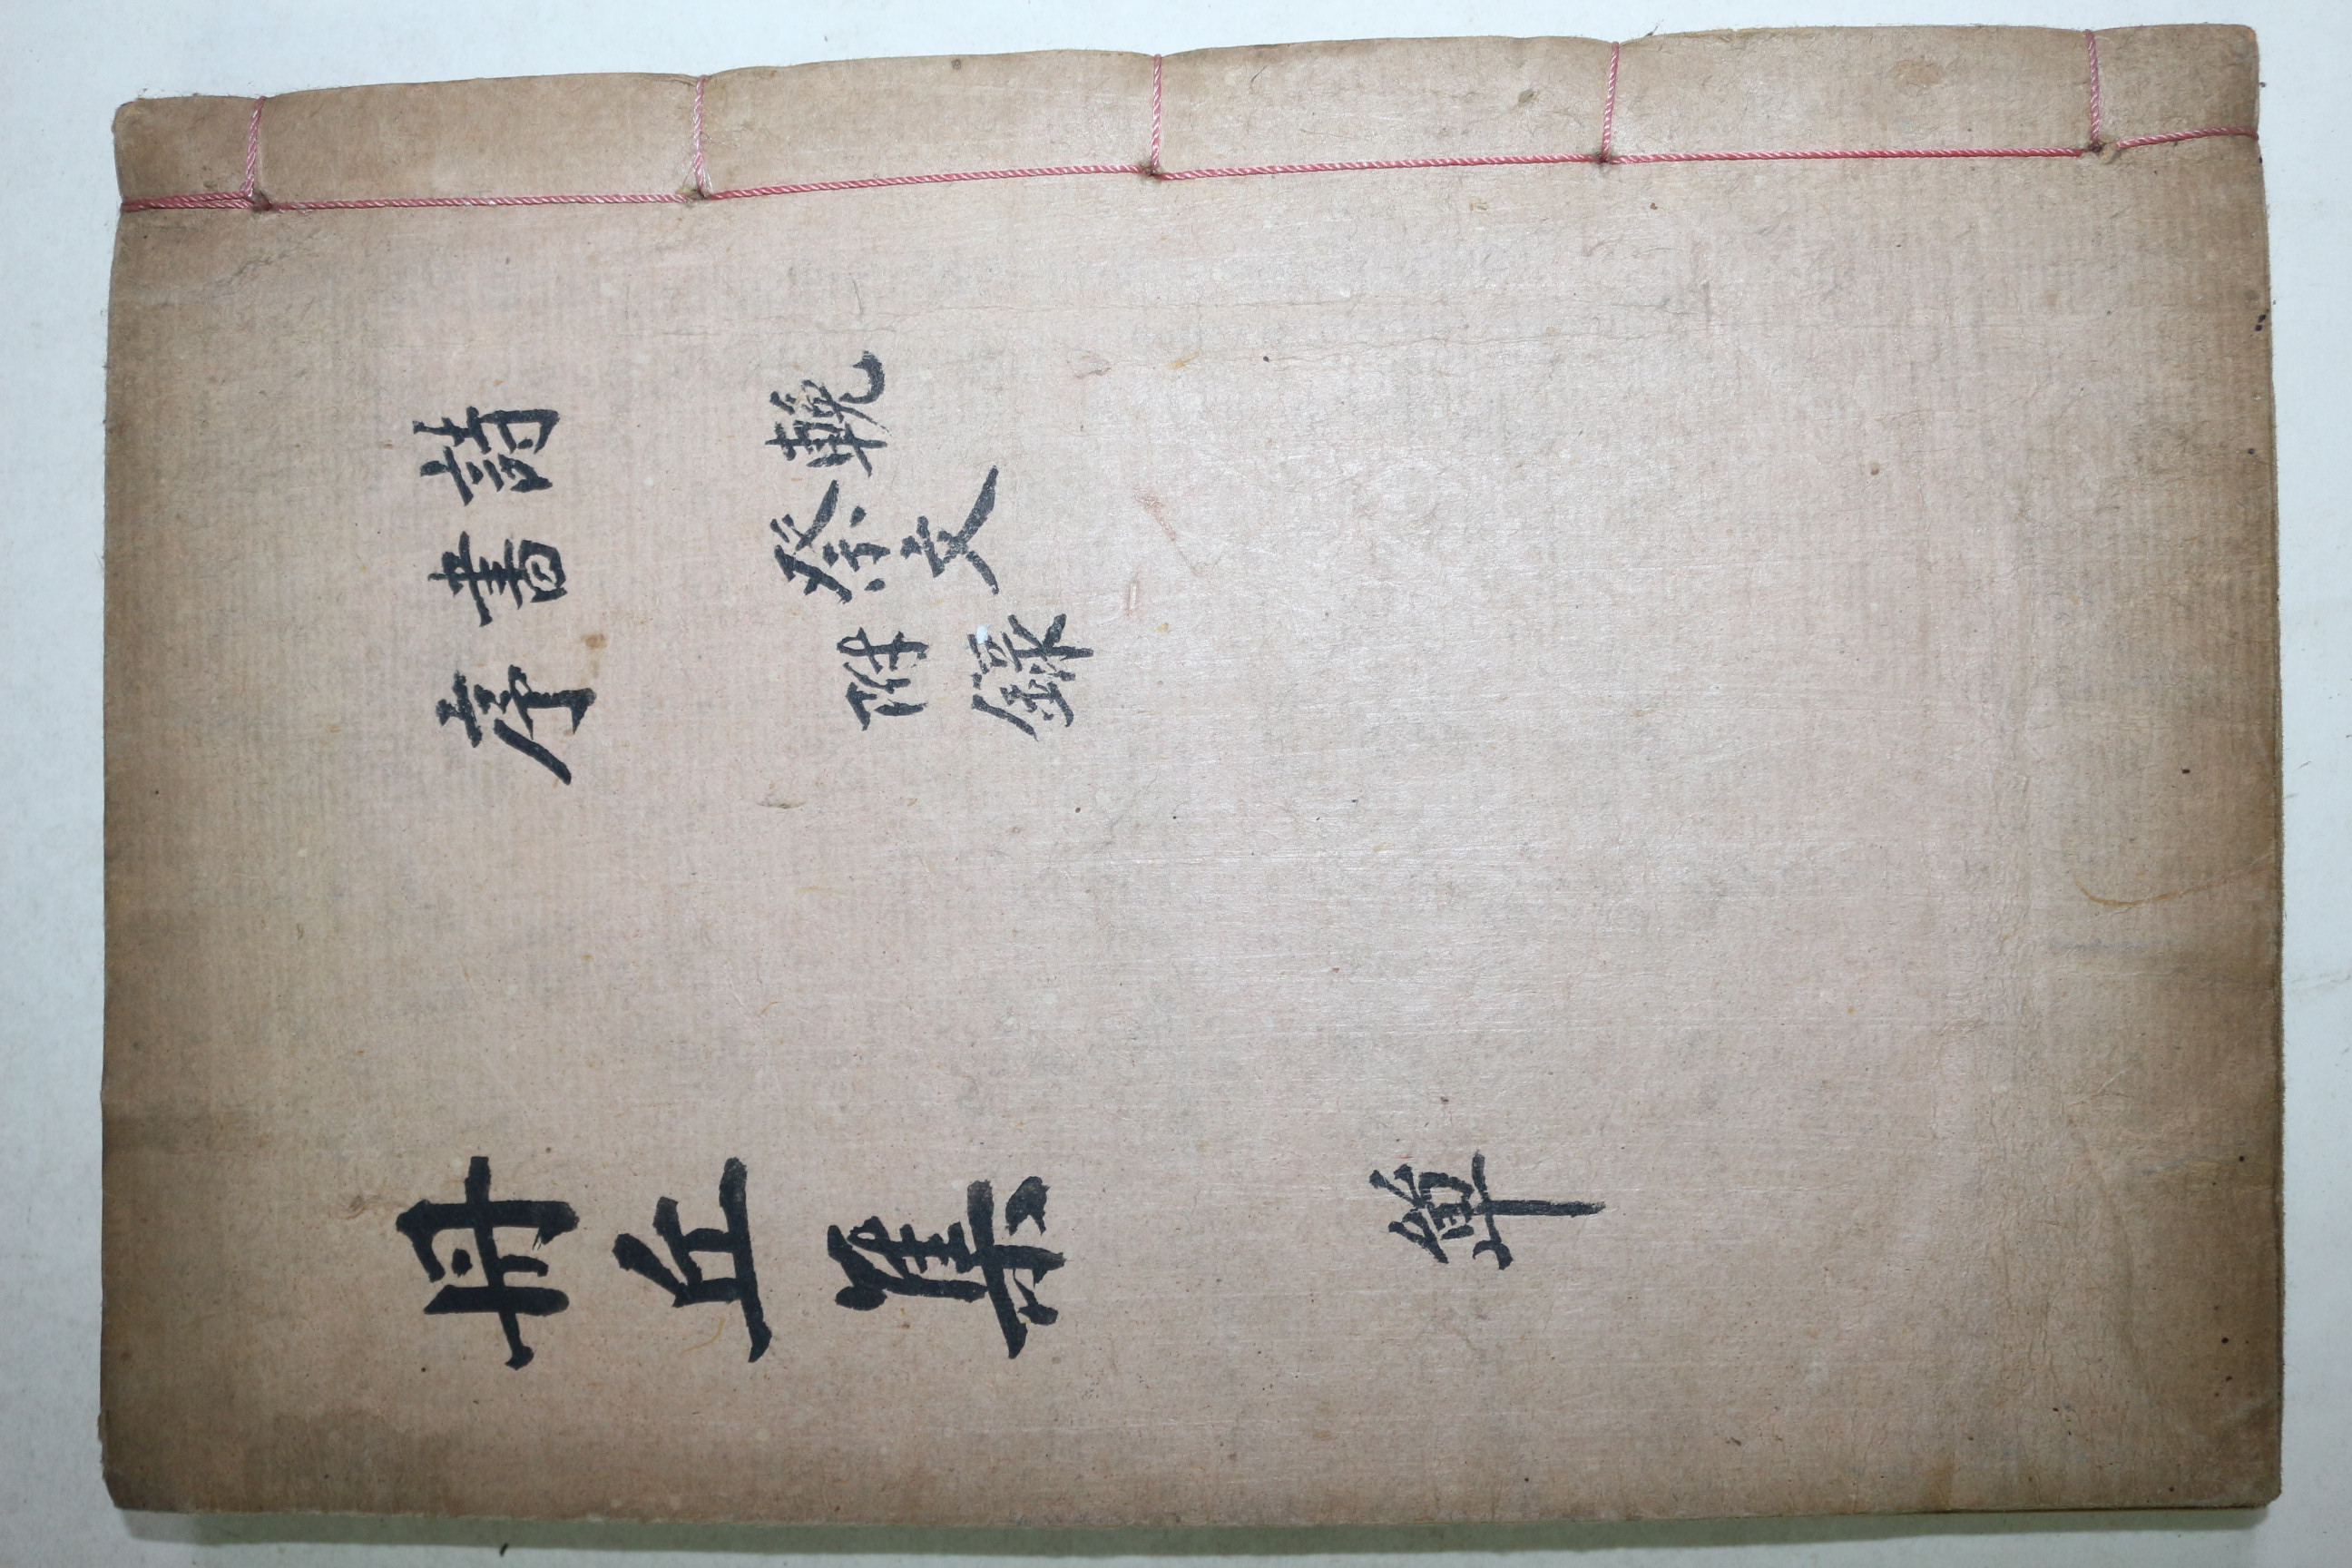 詩
書
序
輓
祭文
附錄
丹丘集
單